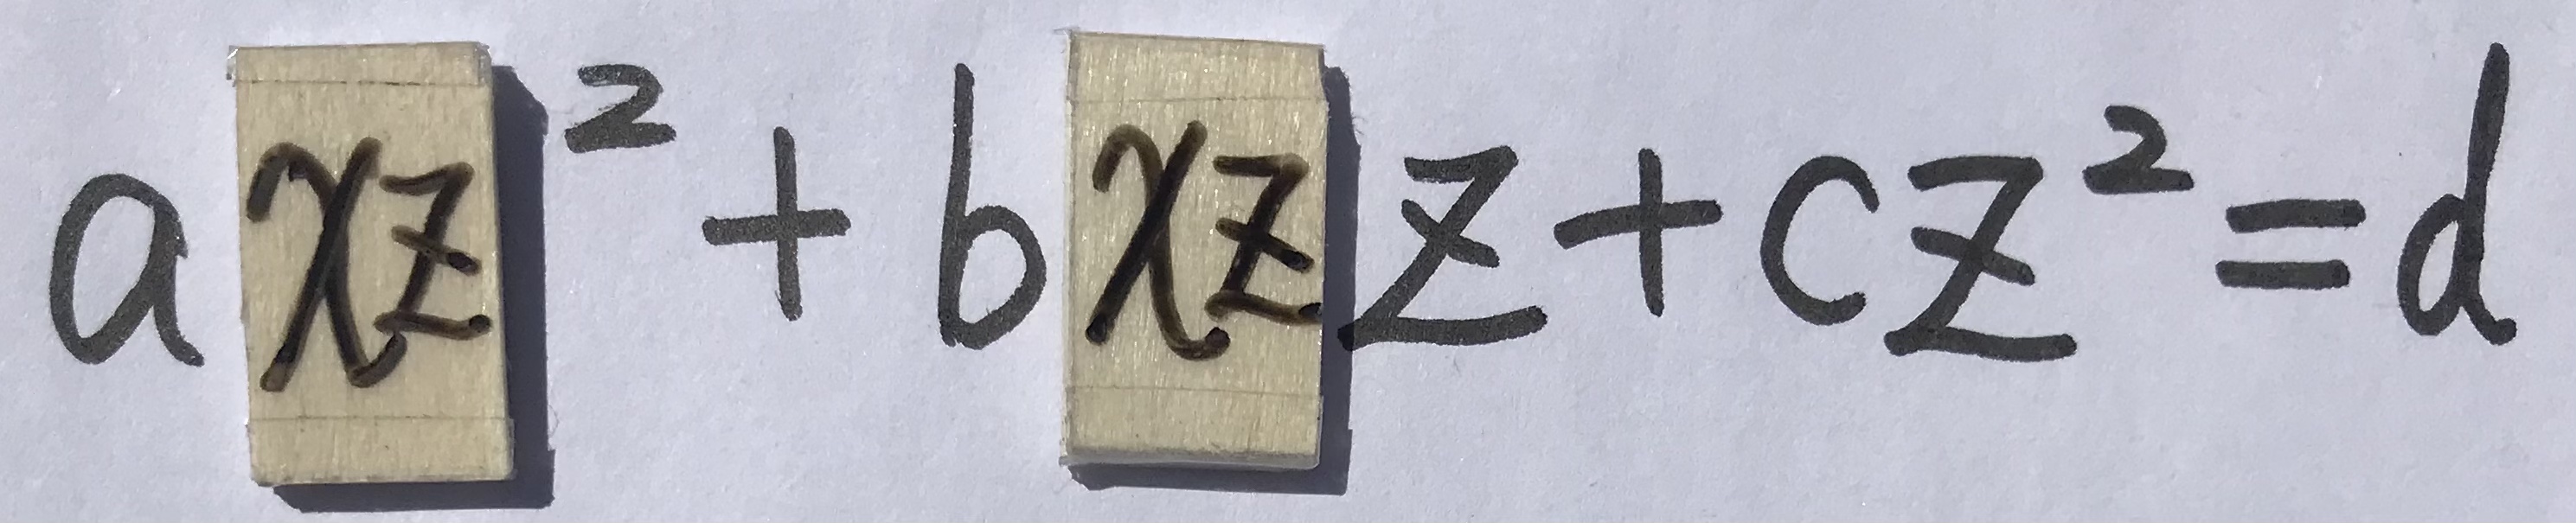 a xz ² + b xz z + cz² = d